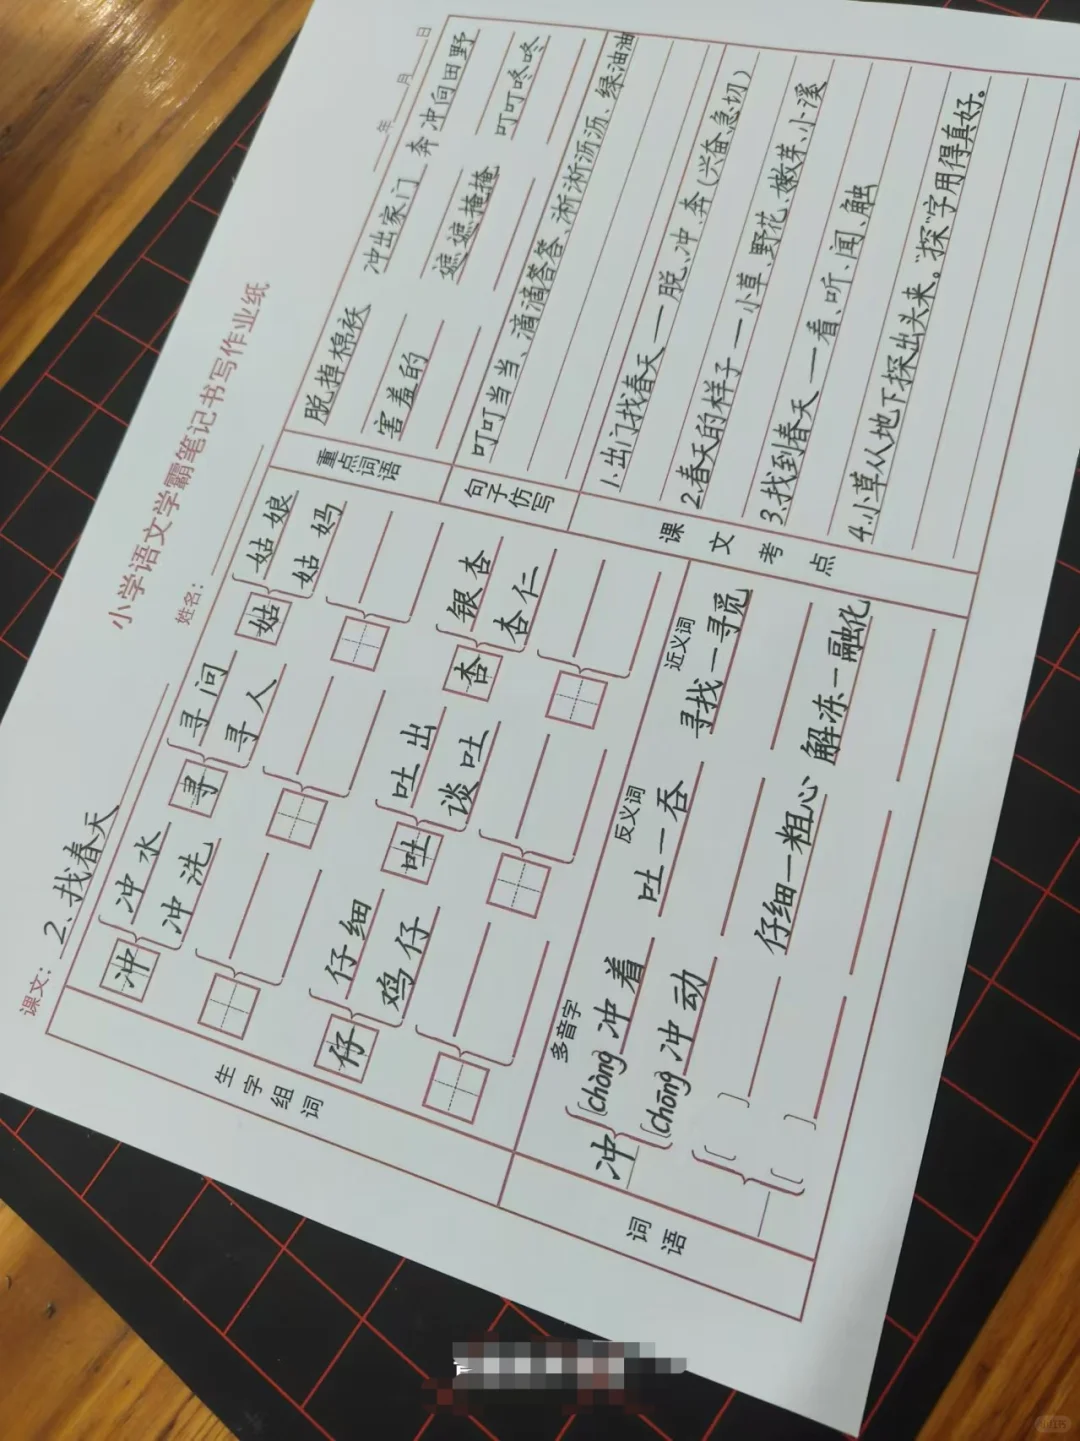 小学语文学霸笔记书写作业纸
课文：2、找春天 姓名： 年 月 日
生字组词
冲 冲水 冲洗
寻 寻问 寻人
姑 姑娘 姑妈
仔 仔细 鸡仔
吐 吐出 谈吐
杏 银杏 杏仁
词语
多音字 反义词 近义词
冲 (chòng) 冲着 吐—吞 寻找—寻觅
(chōng) 冲动
仔细—粗心 解冻—融化
重点词语
脱掉棉袄 冲出家门 奔冲向田野
害羞的 遮遮掩掩 叮叮咚咚
句子仿写
叮叮当当、滴滴答答、淅淅沥沥、绿油油
课文考点
1.出门找春天—脱、冲、奔(兴奋、急切)
2.春天的样子—小草、野花、嫩芽、小溪
3.找到春天—看、听、闻、触
4.小草从地下探出头来。“探”字用得真好。